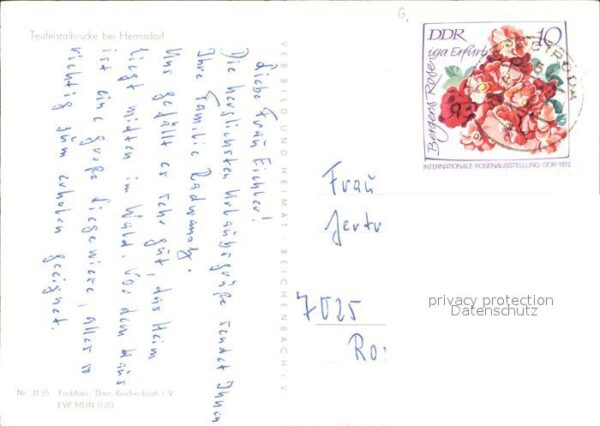 Teufelstalbrücke bei Hermsdorf
Liebe Frau Eichler!
Die herzlichsten Urlaubsgrüße sendet Ihnen
Ihre Familie
Uns gefällt es sehr gut, das Heim
liegt mitten im Wald. Vor dem Haus
ist eine große Liegewiese, alles so
richtig zum erholen geeignet.
Nr. 3135 Farbfoto: Darr, Reichenbach i. V.
EVP MDN 0.20
VEB BILD UND HEIMAT REICHENBACH i. V.
G.
DDR 10
iga Erfurt
Bergers Rose
INTERNATIONALE ROSENAUSSTELLUNG · DDR · 1972
Frau
7025
privacy protection
Datenschutz